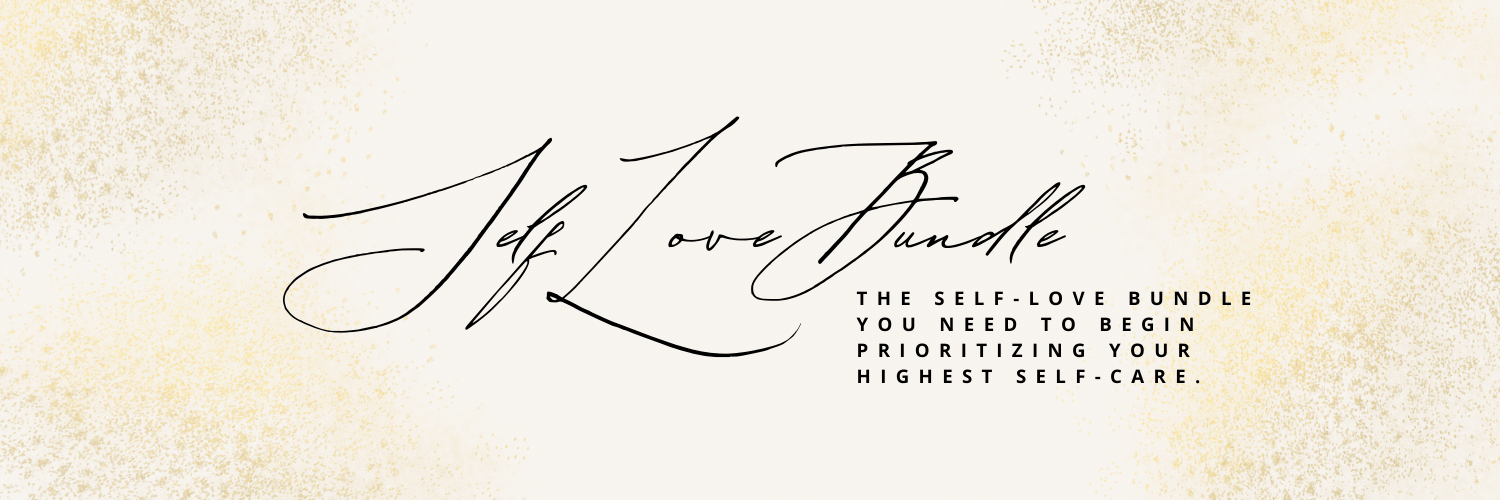 Self Love Bundle
THE SELF-LOVE BUNDLE
YOU NEED TO BEGIN
PRIORITIZING YOUR
HIGHEST SELF-CARE.